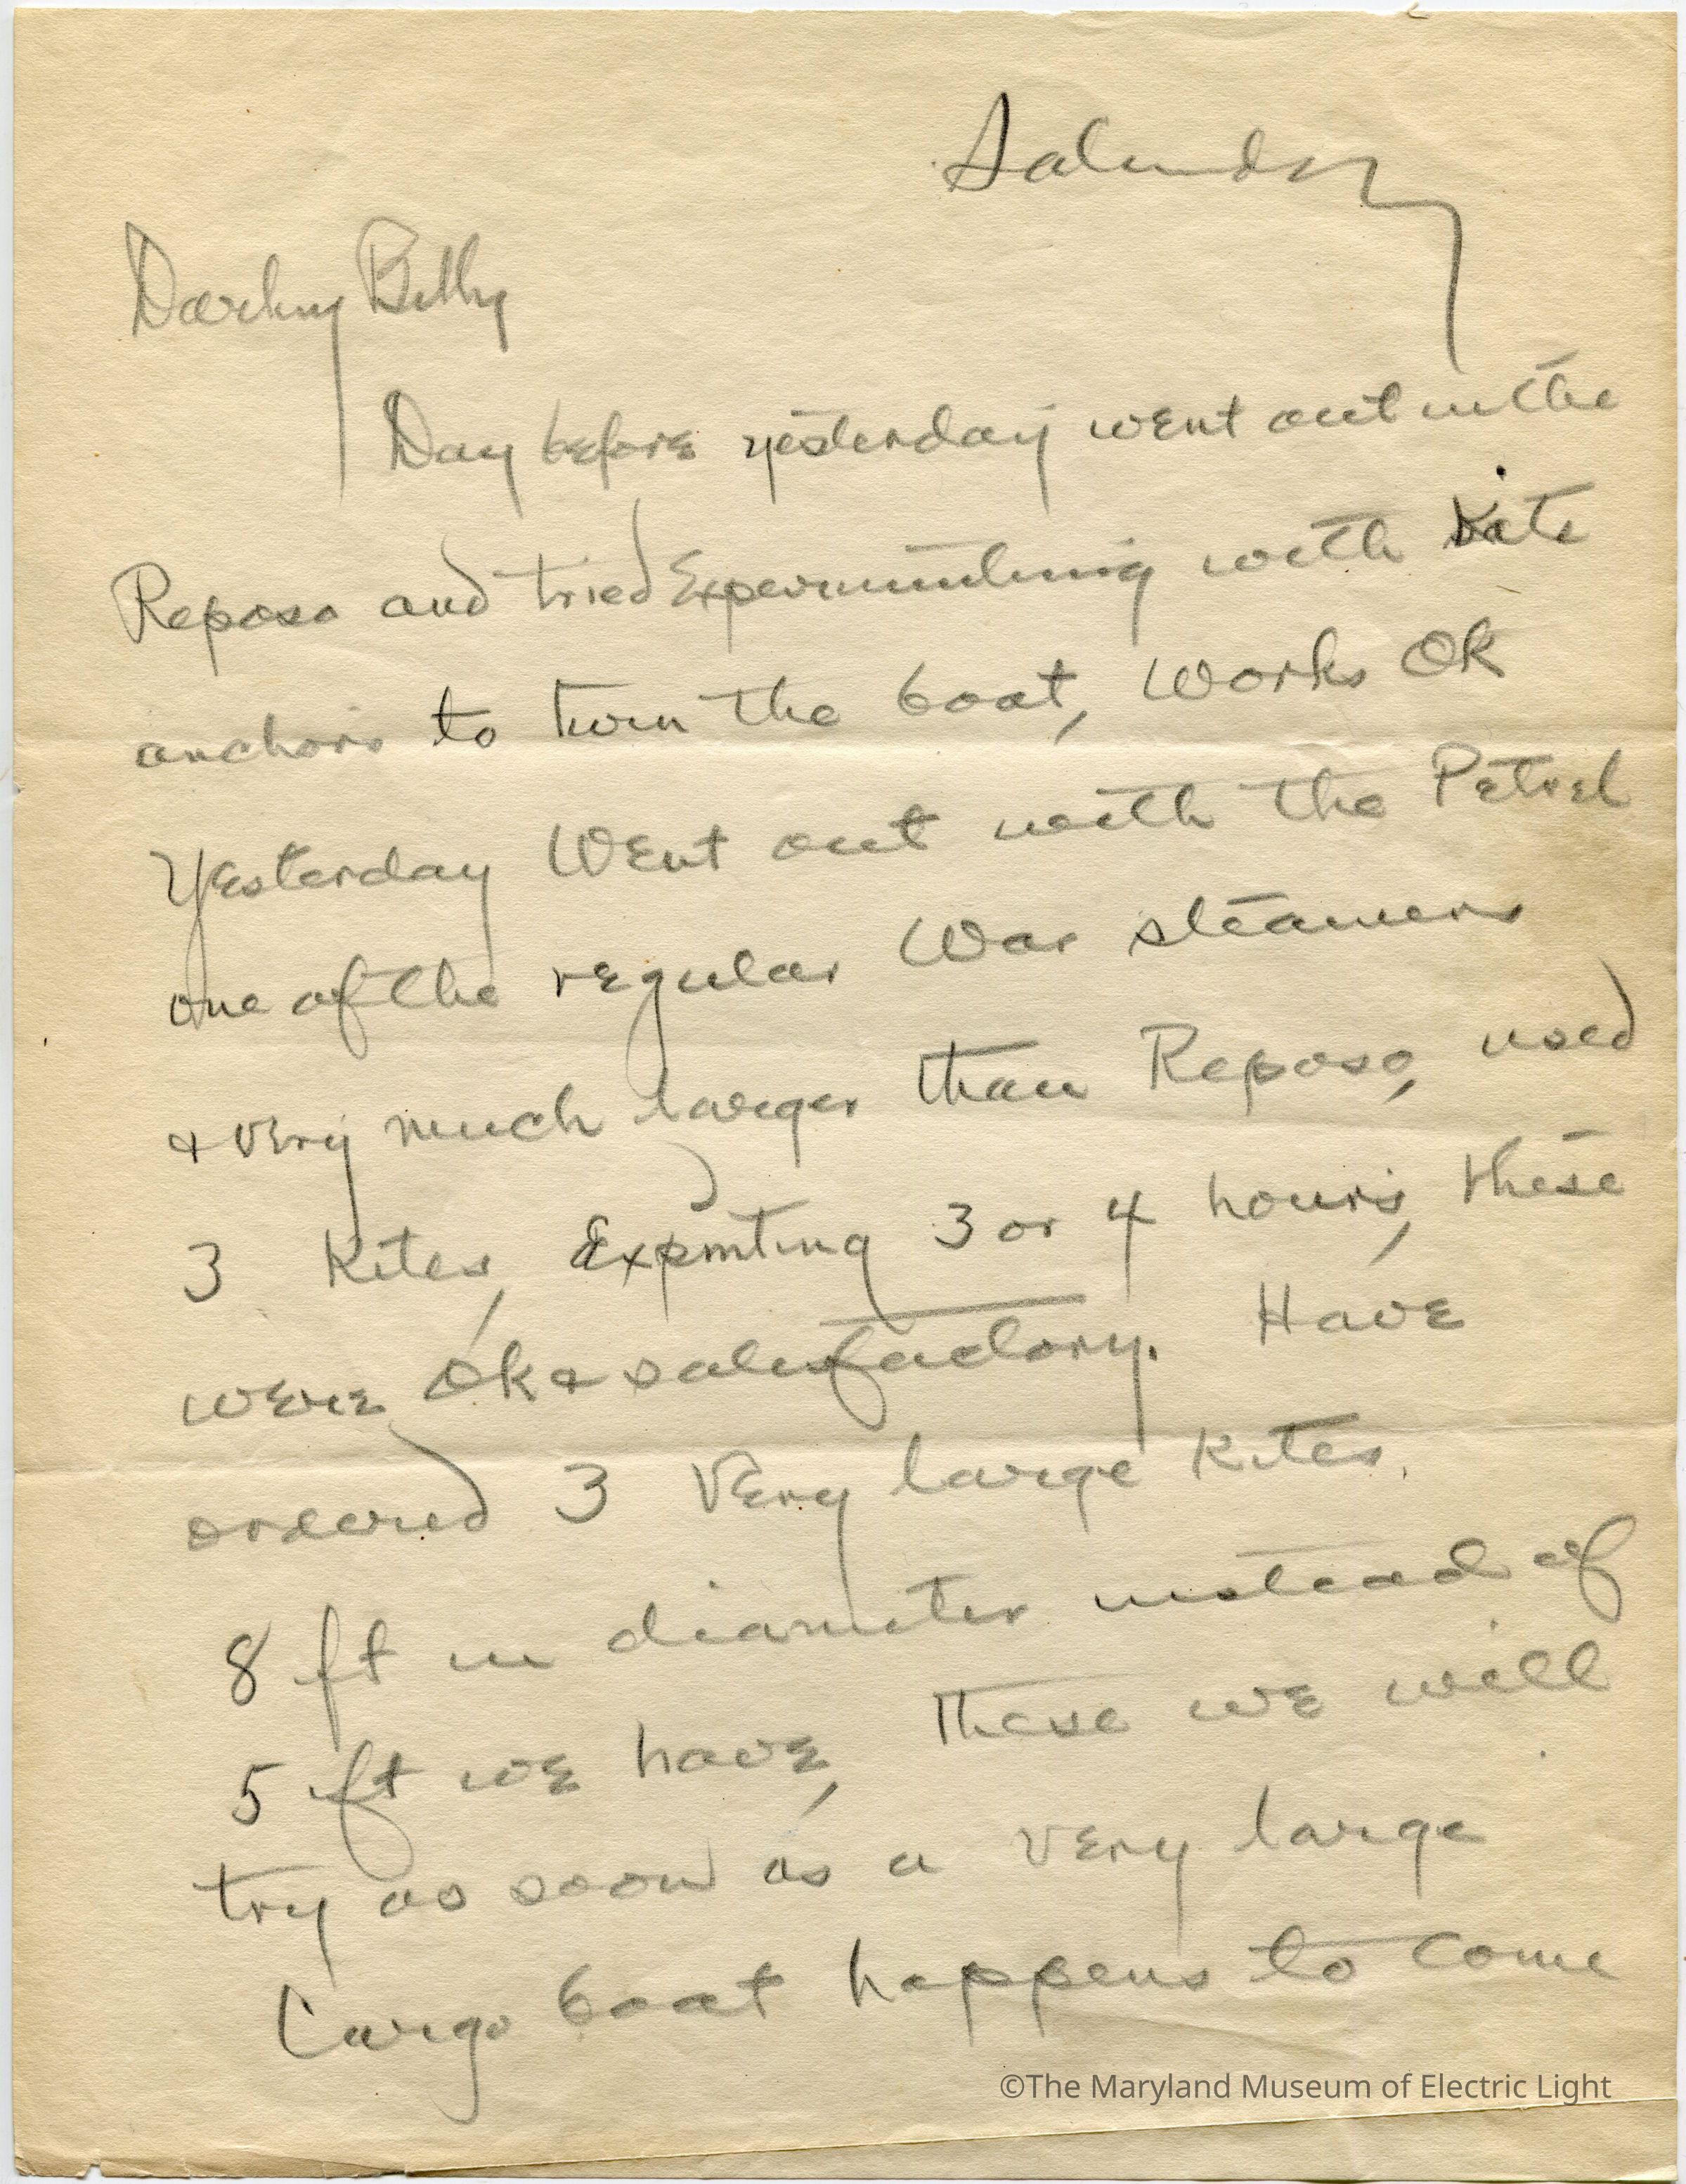 Saturday
Darling Billy
Day before yesterday went out in the
Reposo and tried Experimenting with Kite
anchors to turn the boat, Works OK
Yesterday Went out with the Petrel
one of the regular War steamers
& very much larger than Reposo, used
3 Kites, Expmting 3 or 4 hours, these
were Ok & satisfactory. Have
ordered 3 Very large Kites.
8 ft in diameter instead of
5 ft we have, These we will
try as soon as a very large
Cargo boat happens to come
©The Maryland Museum of Electric Light